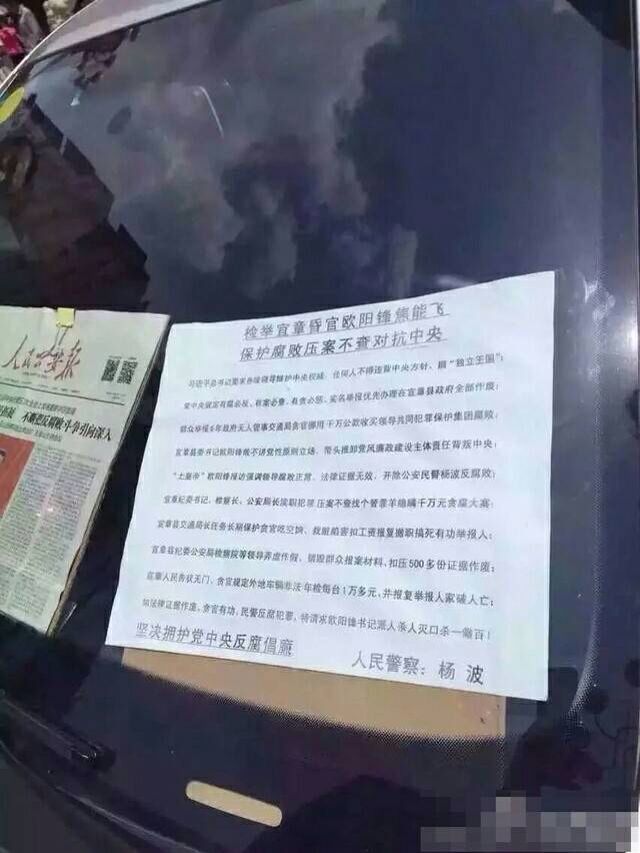 人民公安报
不断把反腐败斗争引向深入
检举宜章昏官欧阳锋焦能飞
保护腐败压案不查对抗中央
习近平总书记要求各级领导维护中央权威，任何人不得违背中央方针，搞“独立王国”；
党中央规定有腐必反、有案必查、有贪必惩，实名举报优先办理在宜章县政府全部作废；
群众举报5年政府无人管事交通局贪官挪用千万公款收买领导共同犯罪保护集团腐败；
宜章县委书记欧阳锋敢不讲党性原则立场、带头推卸党风廉政建设主体责任背叛中央；
“土皇帝”欧阳锋报访强调领导腐败正常、法律证据无效，开除公安民警杨波反腐败；
宜章纪委书记、检察长、公安局长渎职犯罪，压案不查找个替罪羊隐瞒千万元贪腐大案；
宜章县交通局长任务长期保护贪官吃空饷、栽赃陷害扣工资报复撤职搞死有功举报人；
宜章县纪委公安局检察院等领导弄虚作假、销毁群众报案材料、扣压500多份证据作废；
宜章人民告状无门、贪官规定外地车辆非法年检每台1万多元，并报复举报人家破人亡；
如法律证据作废，贪官有功，民警反腐犯罪，特请求欧阳锋书记派人杀人灭口杀一儆百！
坚决拥护党中央反腐倡廉
人民警察：杨 波